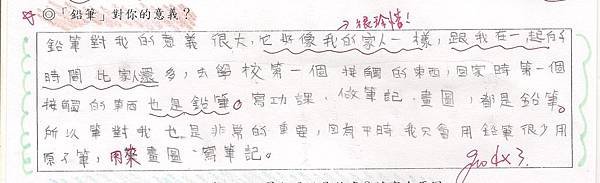 ◎「鉛筆」對你的意義？
很珍惜！
鉛筆對我的意義很大，它好像我的家人一樣，跟我在一起的
時間比家人還多，去學校第一個接觸的東西，回家時第一個
接觸的東西也是鉛筆。寫功課、做筆記、畫圖，都是鉛筆。
所以筆對我也是非常的重要，因有平時我只會用鉛筆很少用
原子筆，用來畫圖、寫筆記。
good x3